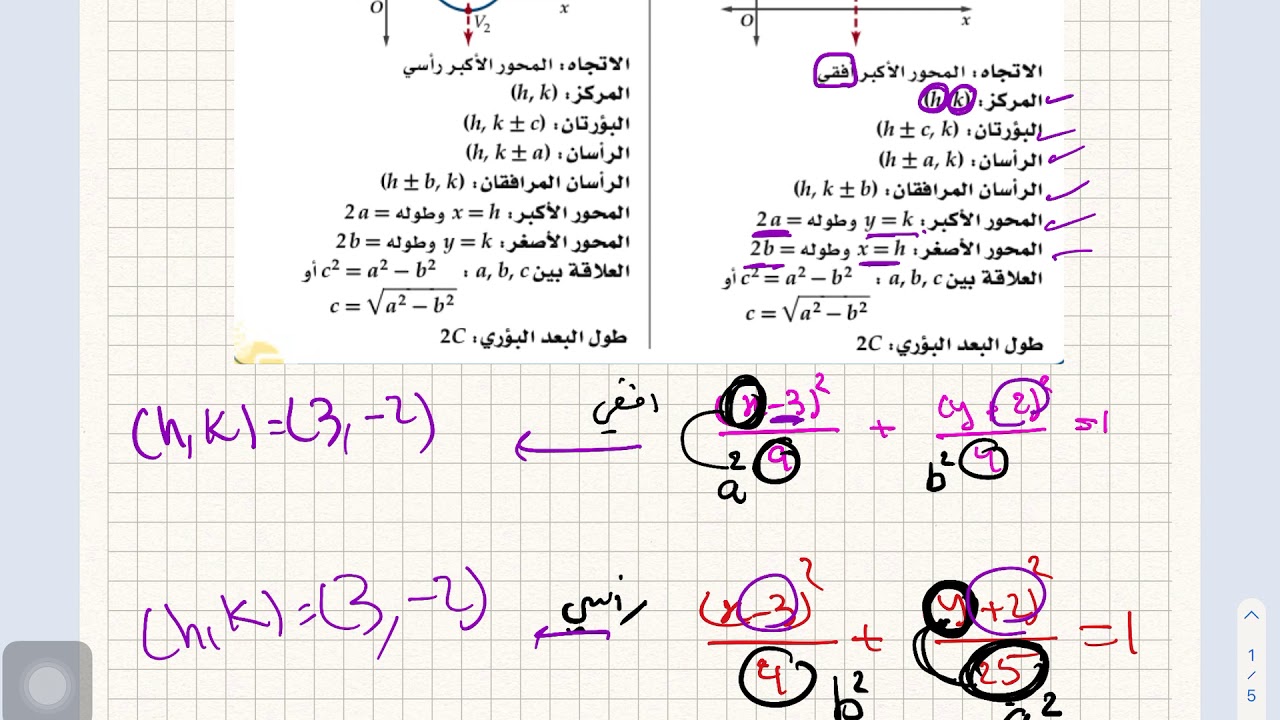 O x
الاتجاه: المحور الأكبر أفقي
المركز: (h, k)
البؤرتان: (h ± c, k)
الرأسان: (h ± a, k)
الرأسان المرافقان: (h, k ± b)
المحور الأكبر: y = k وطوله = 2a
المحور الأصغر: x = h وطوله = 2b
العلاقة بين a, b, c : c² = a² − b² أو
c = √(a² − b²)
طول البعد البؤري: 2C
O V₂ x
الاتجاه: المحور الأكبر رأسي
المركز: (h, k)
البؤرتان: (h, k ± c)
الرأسان: (h, k ± a)
الرأسان المرافقان: (h ± b, k)
المحور الأكبر: x = h وطوله = 2a
المحور الأصغر: y = k وطوله = 2b
العلاقة بين a, b, c : c² = a² − b² أو
c = √(a² − b²)
طول البعد البؤري: 2C
(x-3)² + (y+2)² =1
a² 9 b² 4
افقي
(h,k)=(3,-2)
(x-3)² + (y+2)² =1
4 b² 25 a²
رأسي
(h,k)=(3,-2)
1
/
5